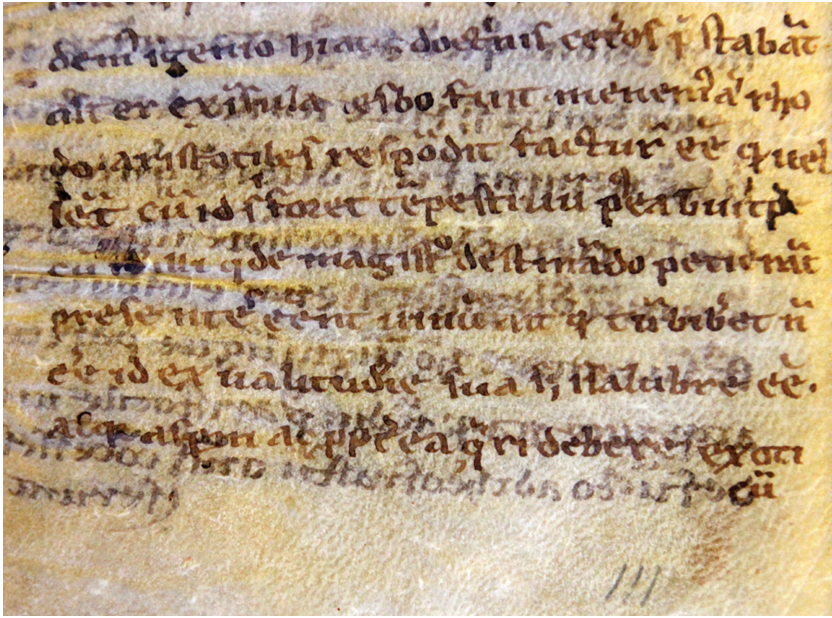 dem̄ igenio hi atqꝫ doct͛nis cet͛os p̄stabāt
alter ex īsula lesbo fuit menem̄ ā rho
do. aristotiles respōdit factur̄ eē quel
lēt cū id s foret tēpestiuū p̾ea breui tp̄e
cū illi q de magist͛o destinādo petierāt
presente eēnt uinū ait q̇ tū bib͛et n̄
eē id ex ualitudīe sua h̵ īsalubre eē.
alqꝫ aspon ac ppt͛ea q̄ri debere exoti
cū
111